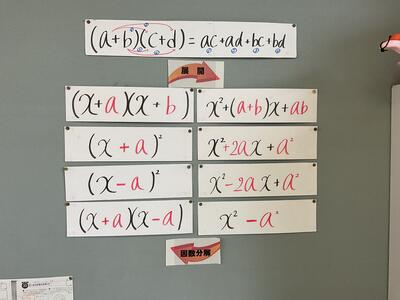 (a+b)(c+d) = ac+ad+bc+bd
展開
(x+a)(x+b) x²+(a+b)x+ab
(x+a)² x²+2ax+a²
(x-a)² x²-2ax+a²
(x+a)(x-a) x²-a²
因数分解